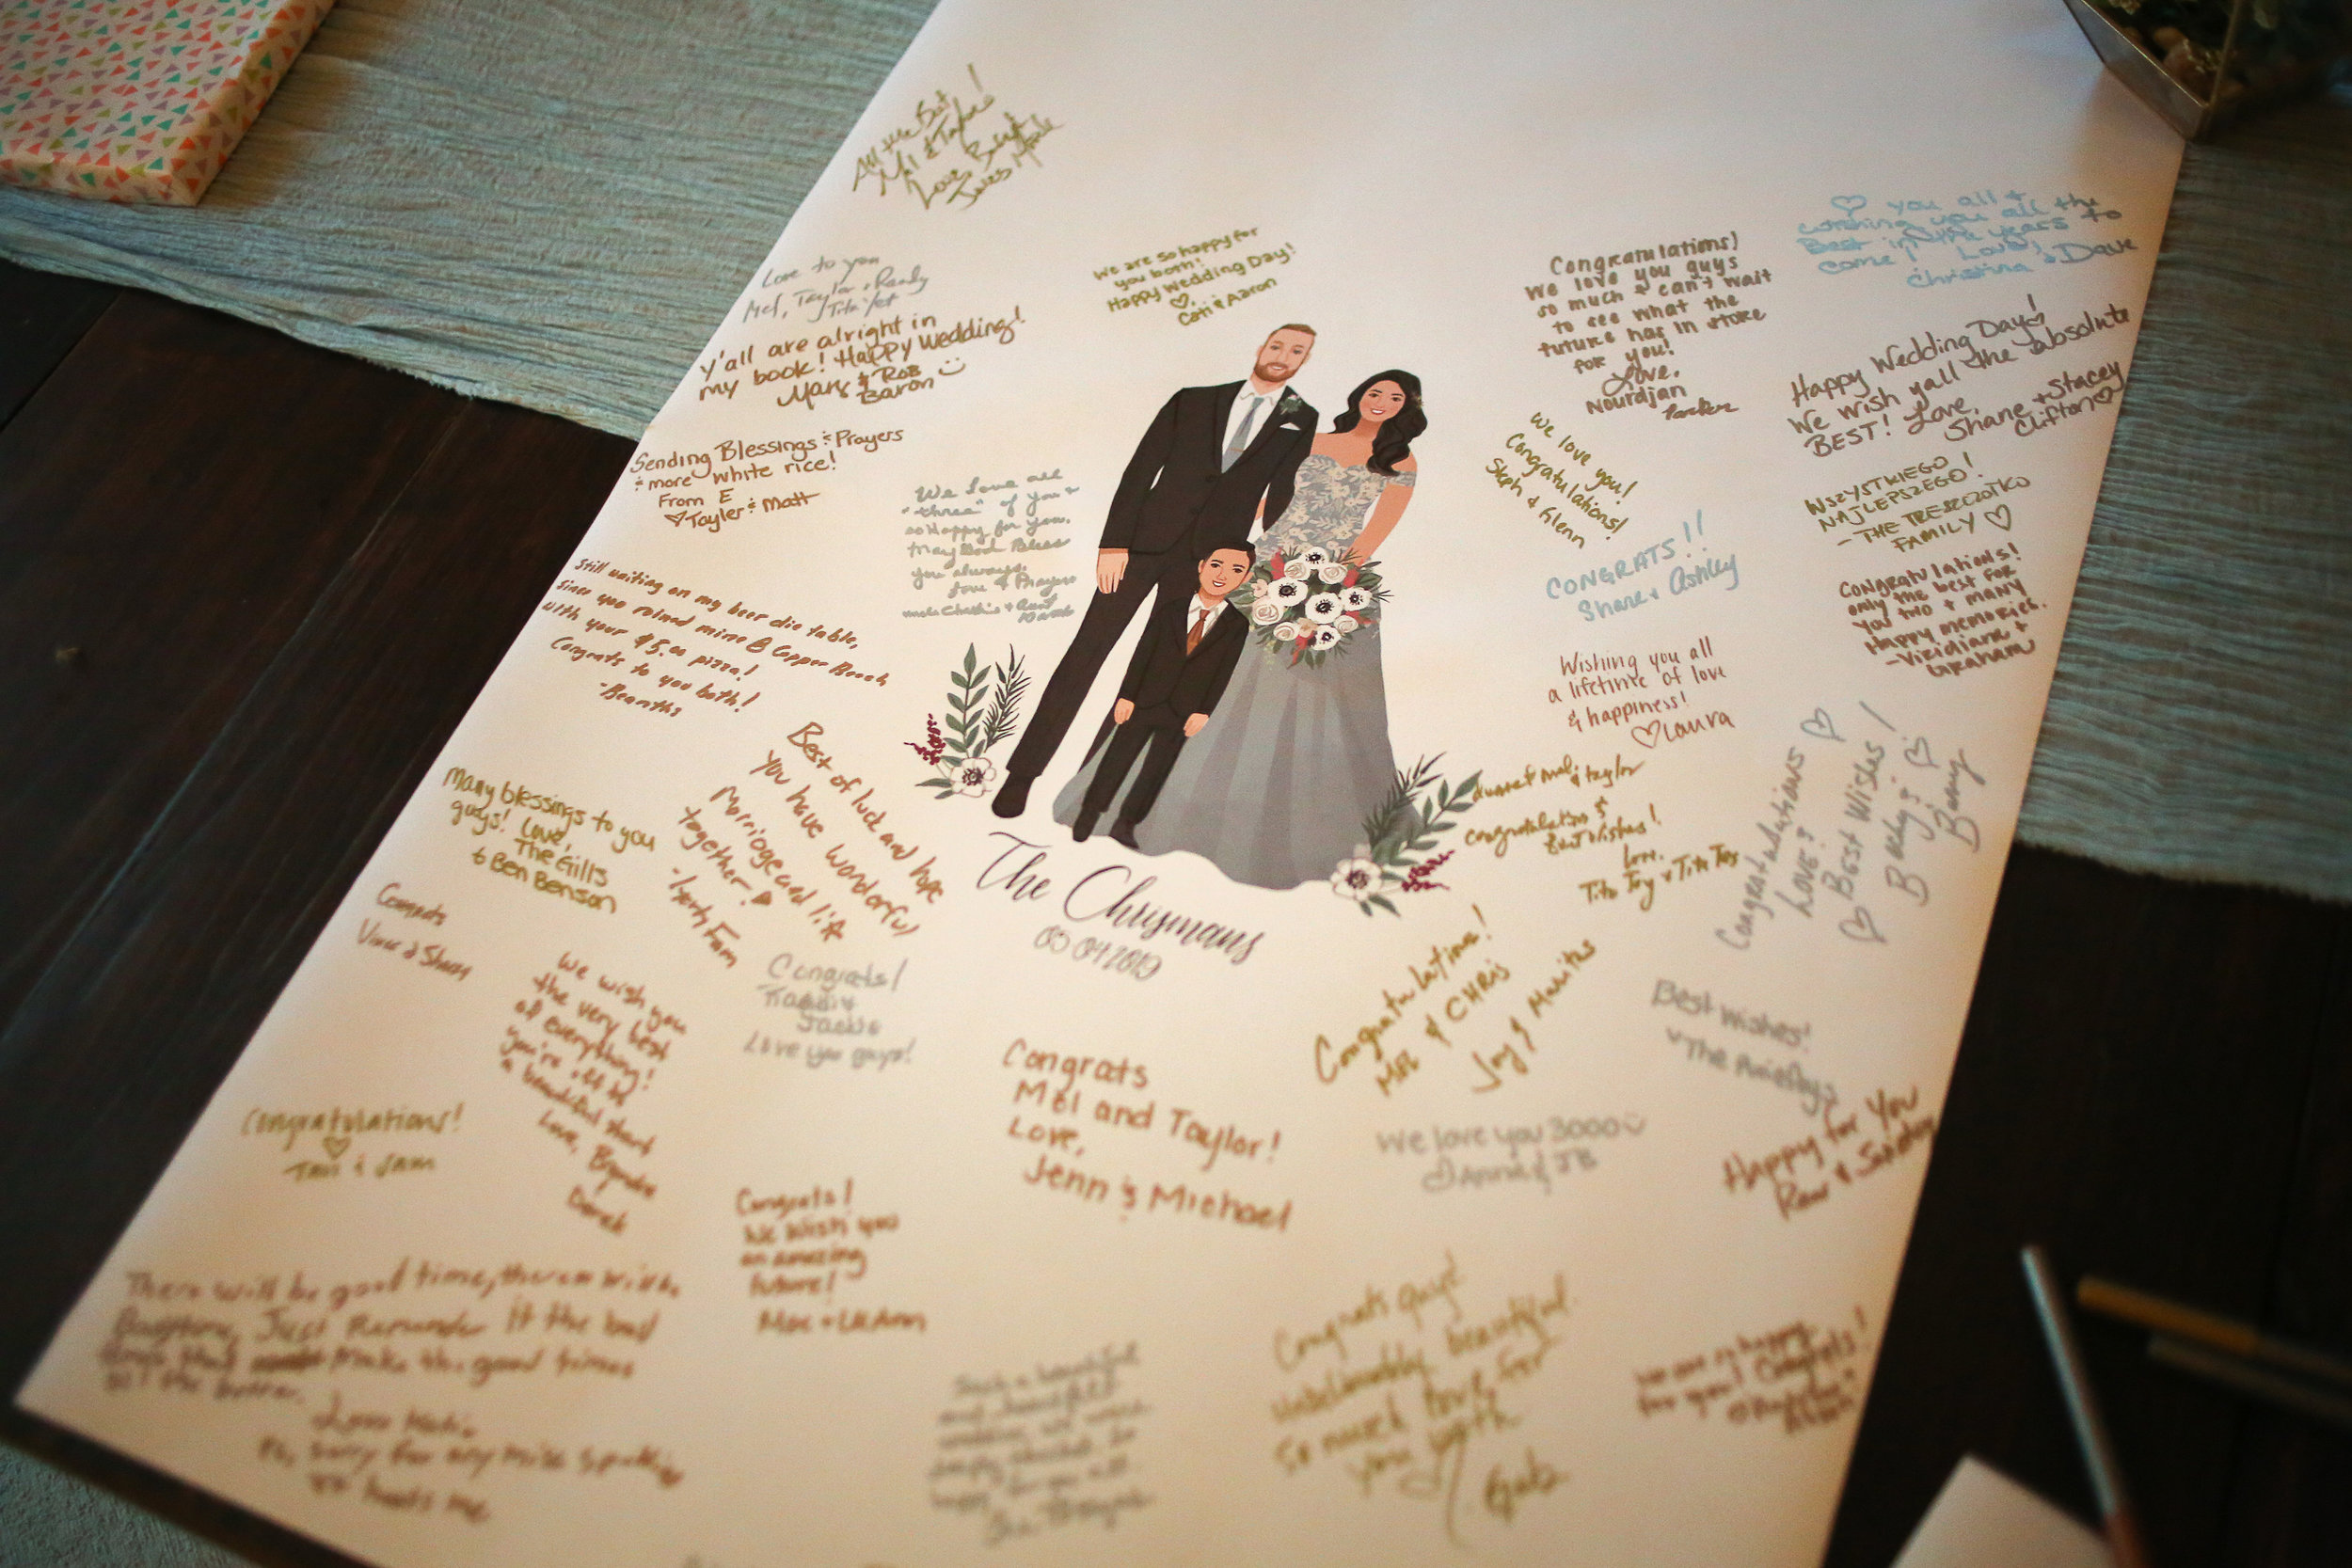 All the Best
Mel & Taylor!
Love
Love to you
Mel, Taylor & Ready
Tita Yet
y'all are alright in
my book! Happy Wedding!
Mary & Rob
Baron
We are so happy for
you both!
Happy Wedding Day!
Cati & Aaron
Congratulations!
We love you guys
so much & can't wait
to see what the
future has in store
for you!
Love,
Nourdjan
Parker
♡ you all &
wishing you all the
Best in the years to
come! Love,
Christina & Dave
Happy Wedding Day!
We wish yall the absolute
BEST! Love,
Shane + Stacey
Clifton ♡
Sending Blessings & Prayers
& more white rice!
From E
♡ Tayler & Matt
We love all
"three" of you &
so Happy for you.
May God Bless
you always.
Love & Prayers
We love you!
Congratulations!
Steph & Glenn
WSZYSTKIEGO
NAJLEPSZEGO!
- THE
FAMILY ♡
CONGRATS!!
Shane & Ashley
Congratulations!
only the best for
you two & many
Happy memories.
- Viridiana &
Graham
Still waiting on my beer die table,
since you ruined mine @ Copper Beech
with your $5.00 pizza!
Congrats to you both!
Wishing you all
a lifetime of love
& happiness!
♡ Laura
Many blessings to you
guys! Love,
The Gills
& Ben Benson
Best of luck and hope
you have wonderful
Marriage and life
together!
Fam
Mel & Taylor
Congratulations &
Best Wishes!
Love,
Tito Toy & Tita Tes
Congratulations ♡
Love &
♡ Best Wishes!
The Chrismans
05 04 2019
Congrats
Vince & Shary
We wish you
the very best
of everything!
you're off to
a beautiful start
Love,
Derek
Congrats!
Jackie
Love you guys!
Congratulations!
& CHRIS
Joy &
Best Wishes!
Congratulations!
♡
& Sam
Congrats
Mel and Taylor!
Love,
Jenn & Michael
We love you 3000
Anna & JB
Happy for You
Congrats!
We wish you
an amazing
future!
There will be good time, there
Just Remember it the bad
make the good times
all the better.
Love
Ps, sorry for any miss spelling
Congrats guys!
Unbelievably beautiful.
So much love for
you both
We are so happy
for you! Congrats!